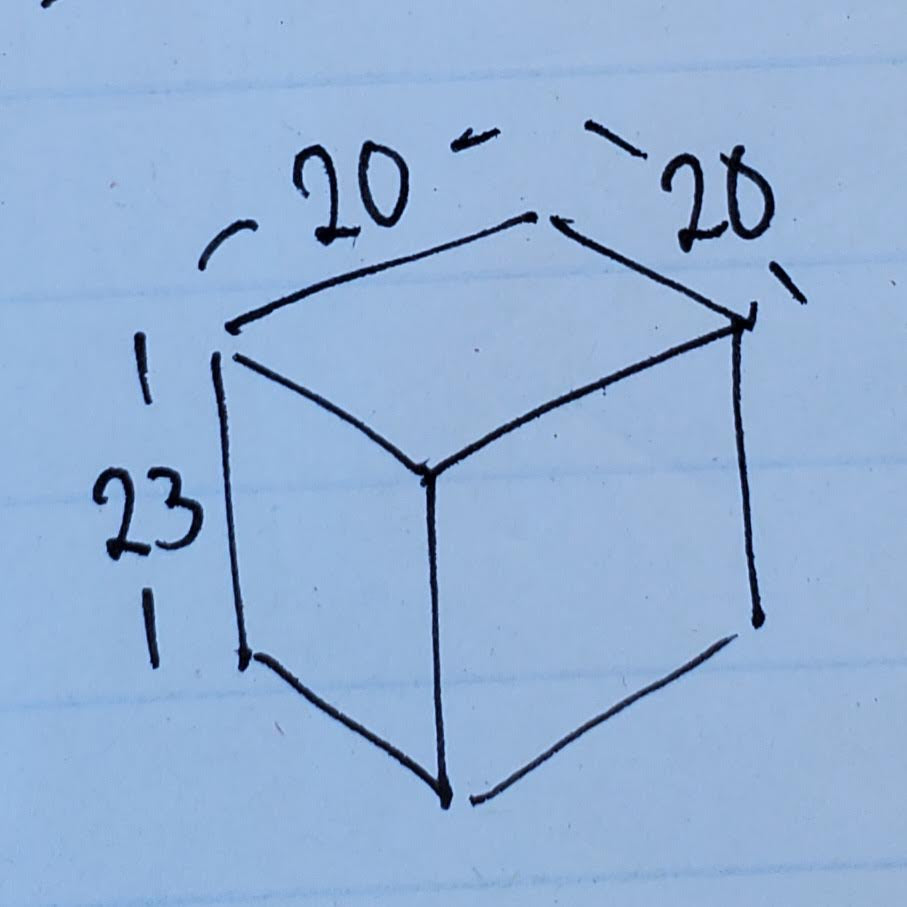 20
20
23